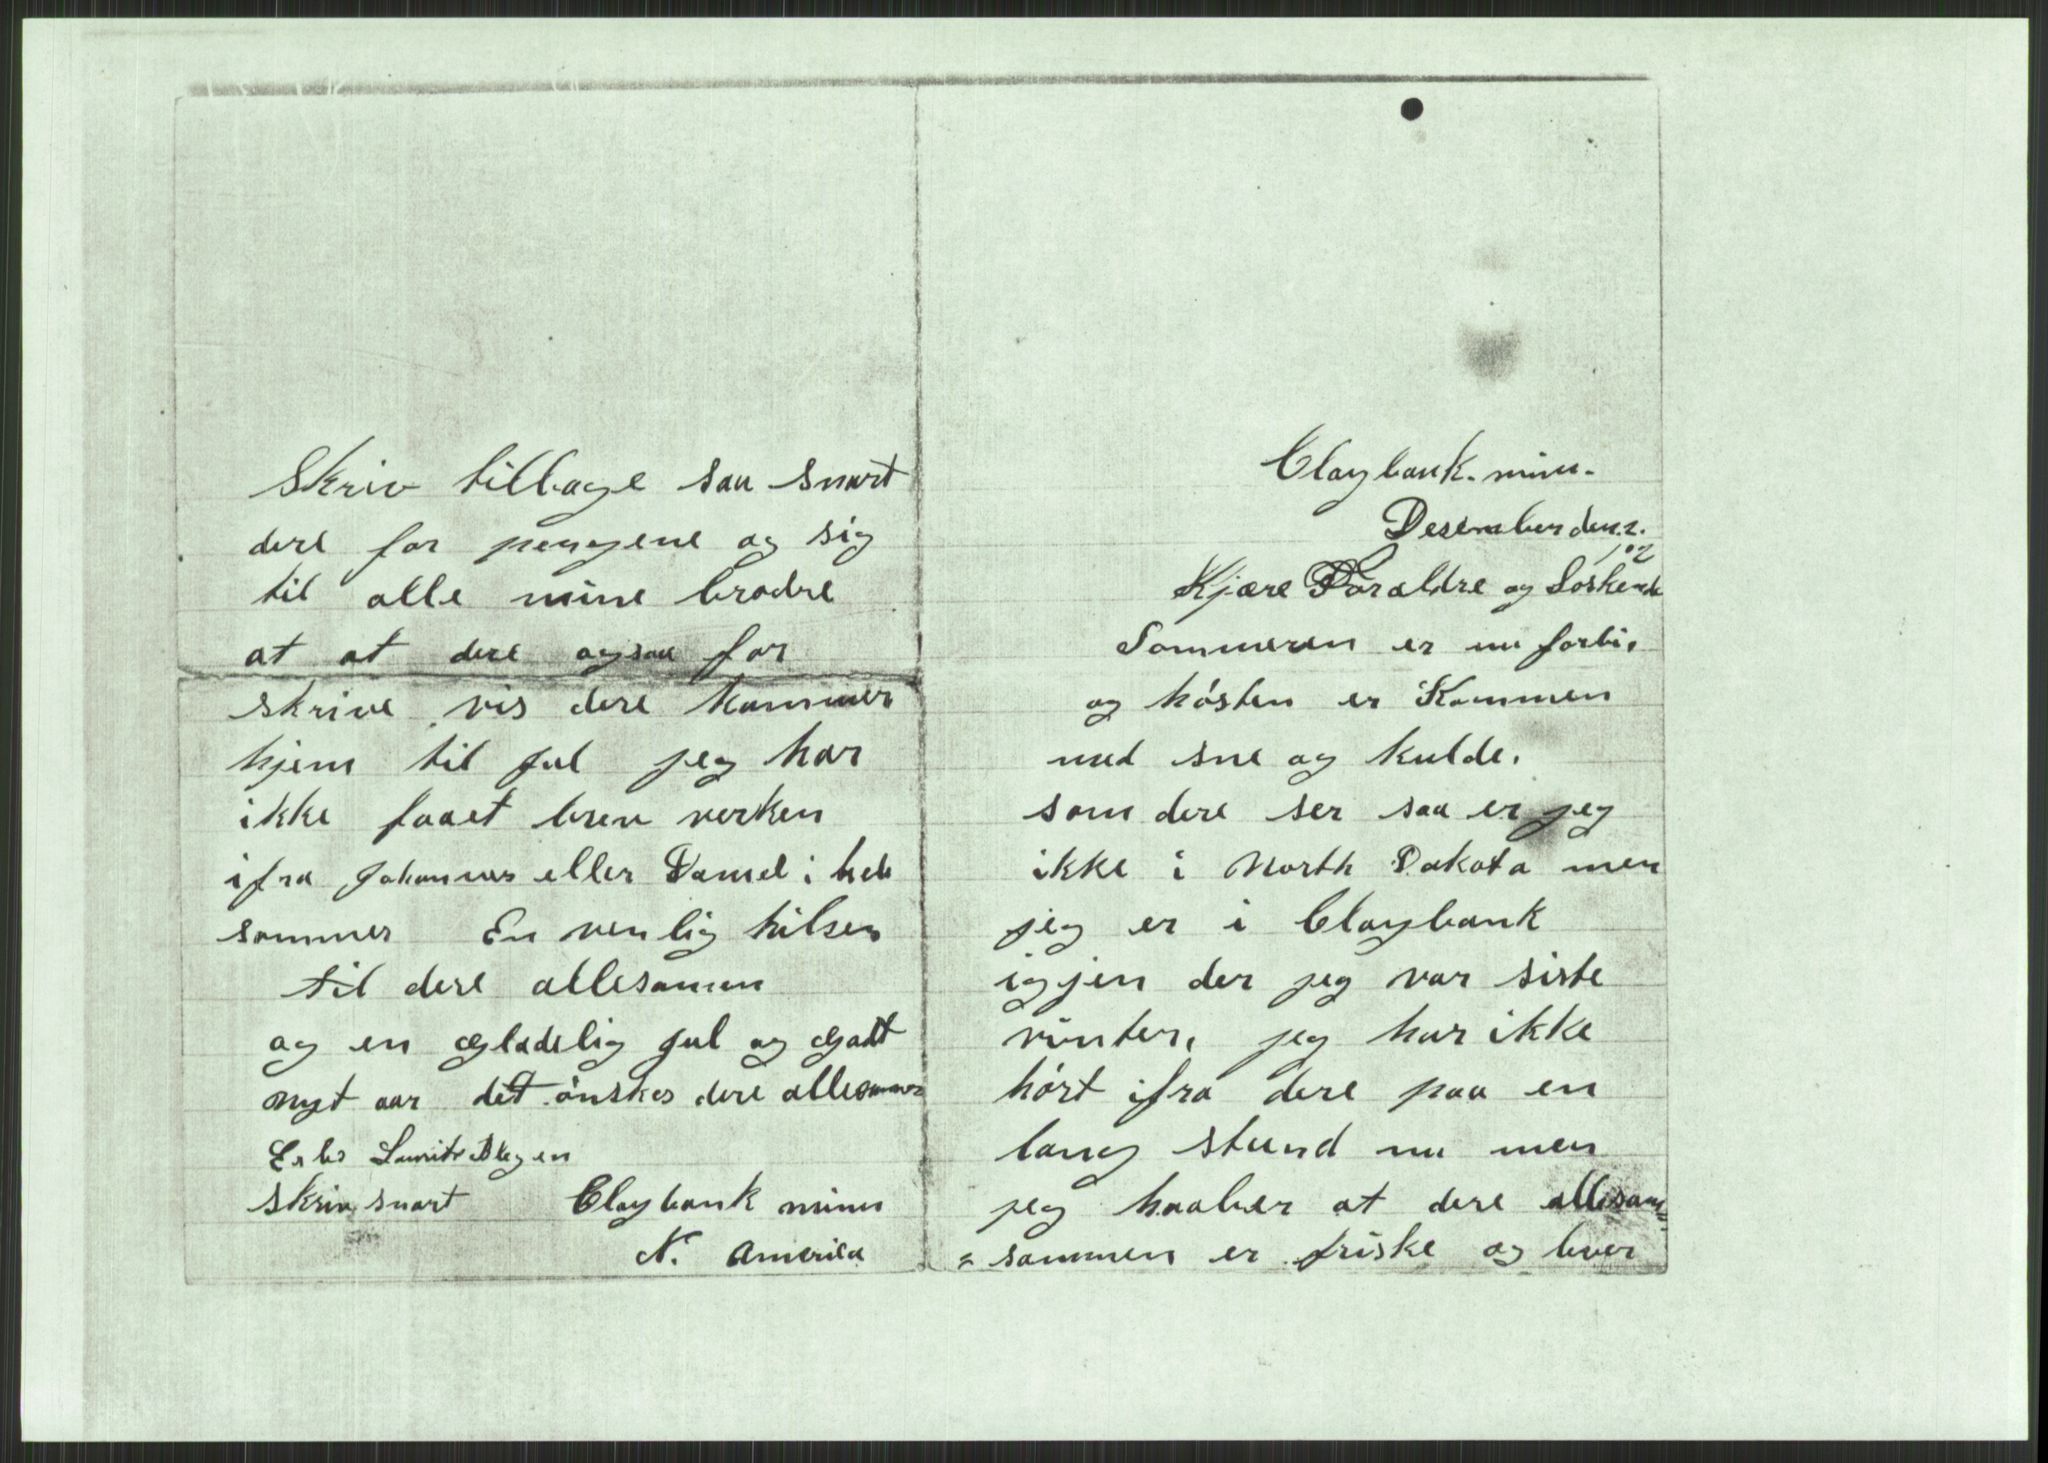 Skriv tillbage saa snart
dere for pengene og sig
til alle mine brodre
at at dere ogsaa for
skrive vis dere kammer
hjem til jul jeg har
ikke faaet brev verken
ifra Johannes eller Daniel i hele
sommer En venlig hilsen
til dere allesamen
og en Gladelig jul og Godt
nyt aar det ønskes dere allesammen
skriv snart Claybank minn
N. America
Claybank. minn.
Desember den 2.
102
Kjære Foraldre og Søskende
Sommeren er nu forbi,
og hósten er Kommen
med sne og kulde.
som dere ser saa er jeg
ikke i North Dakota men
jeg er i Claybank
igjen der jeg var siste
vinter, jeg har ikke
hórt ifra dere paa en
lang stund nu men
jeg haaber at dere allesam=
=sammen er friske og lever